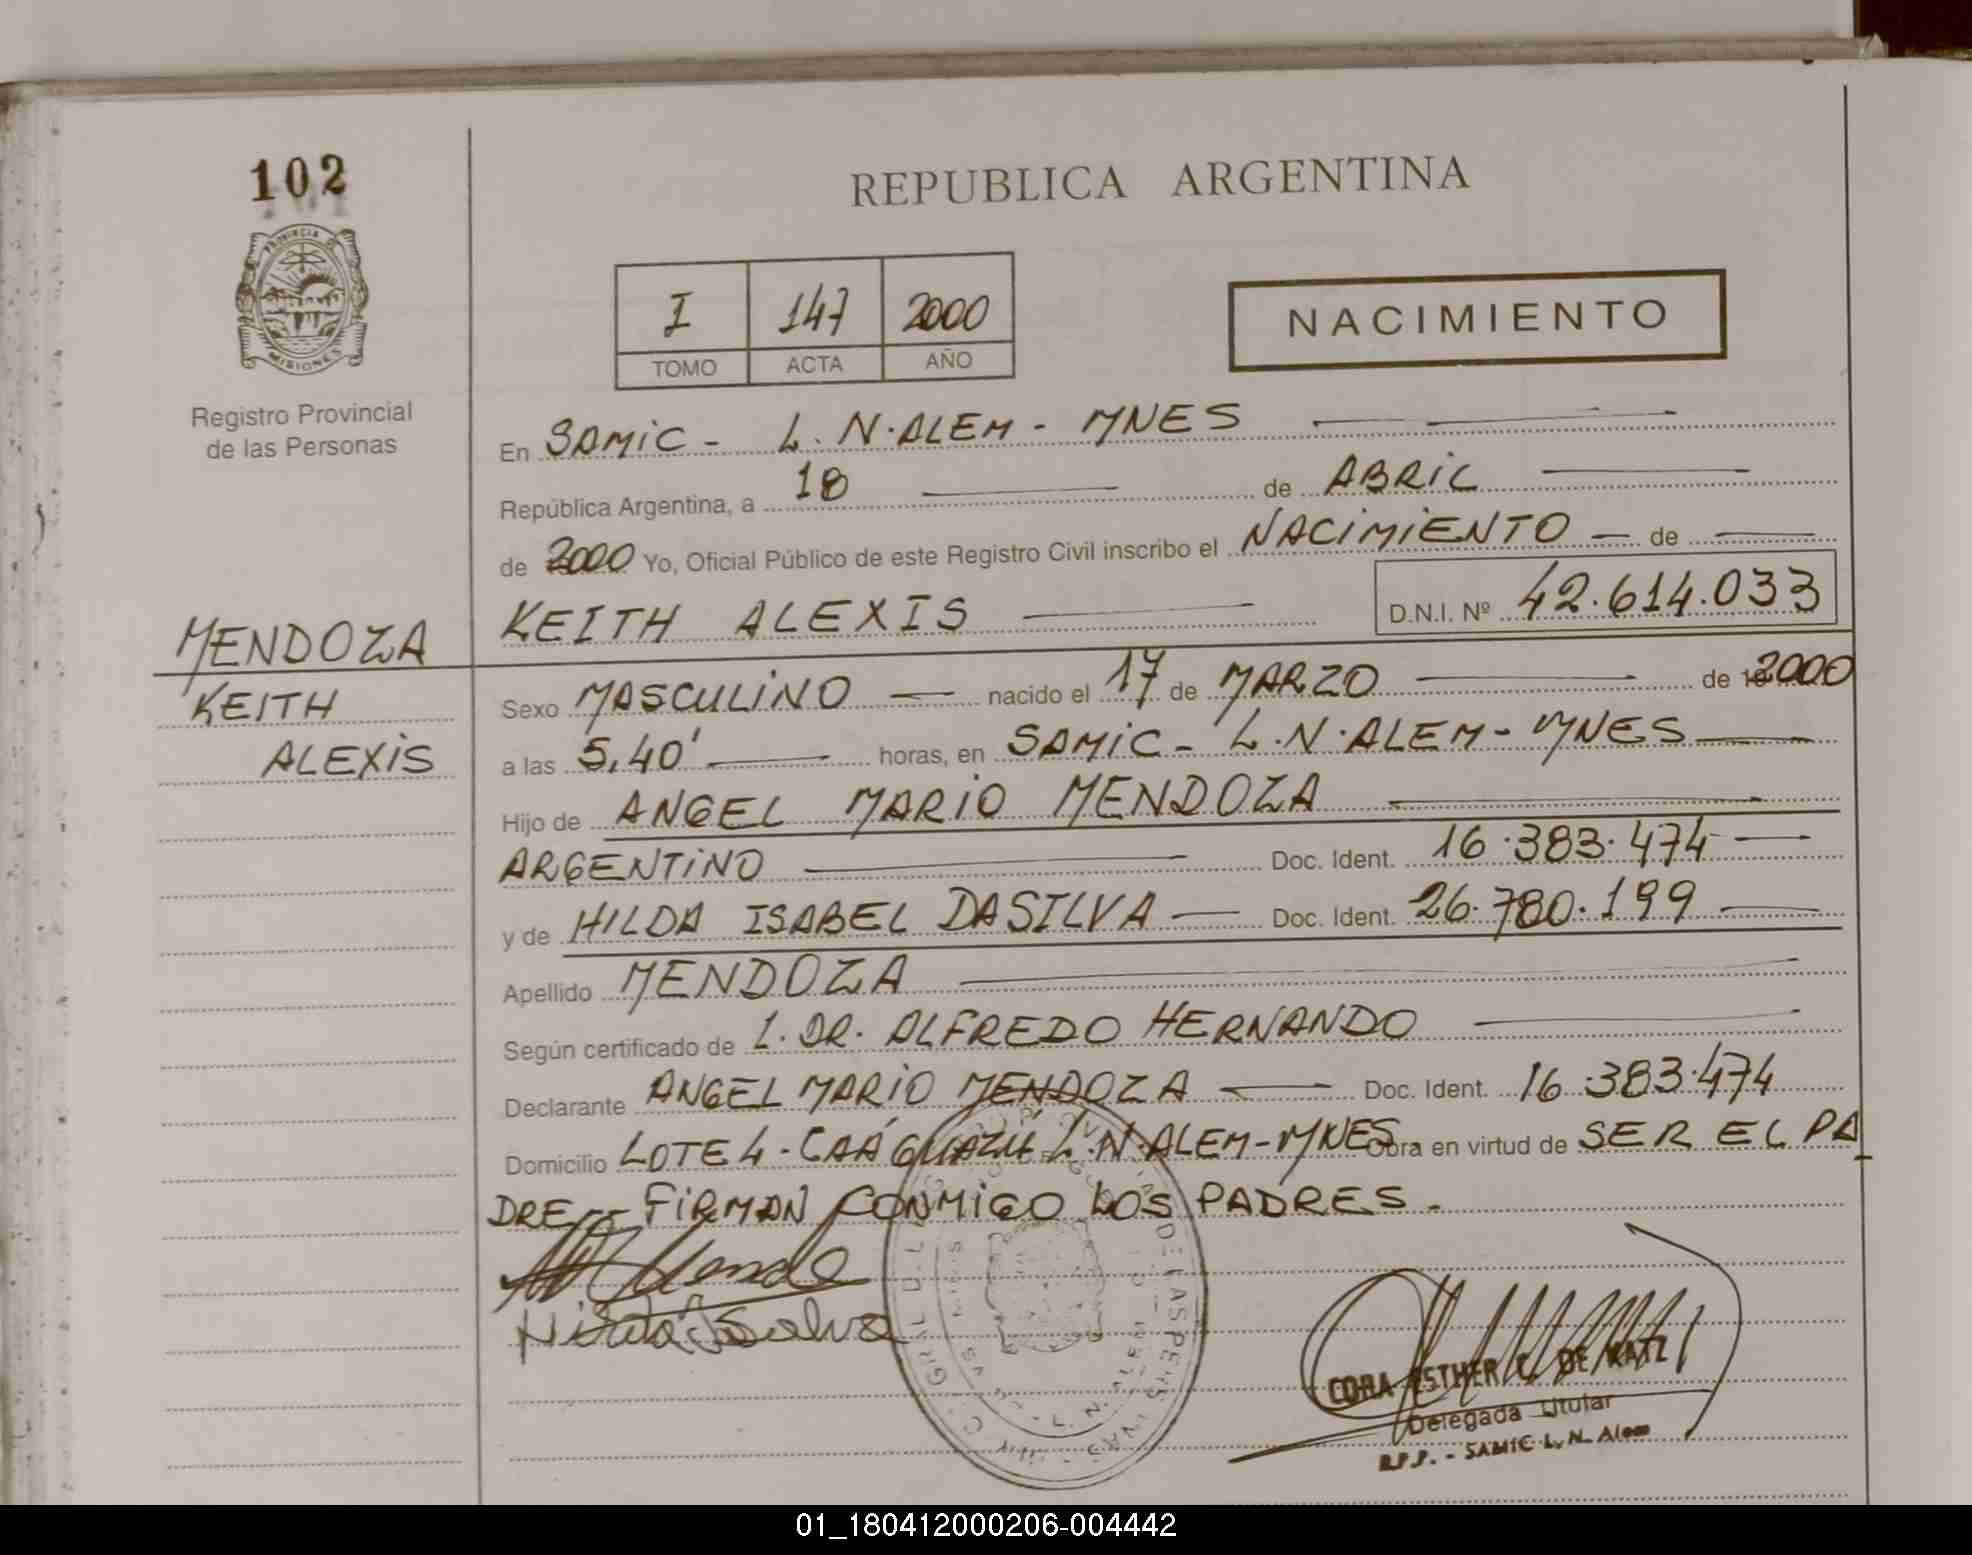 102
PROVINCIA DE
MISIONES
Registro Provincial
de las Personas
MENDOZA
KEITH
ALEXIS
REPUBLICA ARGENTINA
I 147 2000
TOMO ACTA AÑO
NACIMIENTO
En SAMIC - L. N. ALEM - MNES
República Argentina, a 18 de ABRIL
de 2000 Yo, Oficial Público de este Registro Civil inscribo el NACIMIENTO de
KEITH ALEXIS D.N.I. Nº 42.614.033
Sexo MASCULINO nacido el 17 de MARZO de 2000
a las 5,40' horas, en SAMIC - L.N. ALEM - MNES
Hijo de ANGEL MARIO MENDOZA
ARGENTINO Doc. Ident. 16.383.474
y de HILDA ISABEL DASILVA Doc. Ident. 26.780.199
Apellido MENDOZA
Según certificado de L. DR. ALFREDO HERNANDO
Declarante ANGEL MARIO MENDOZA Doc. Ident. 16.383.474
Domicilio LOTE 4 - CAÁGUAZU L.N. ALEM - MNES. Obra en virtud de SER EL PA
DRE -- FIRMAN CONMIGO LOS PADRES.
CORA ESTHER C. DE KATZ
Delegada Titular
R.P.P. - SAMIC L. N. Alem
01_180412000206-004442